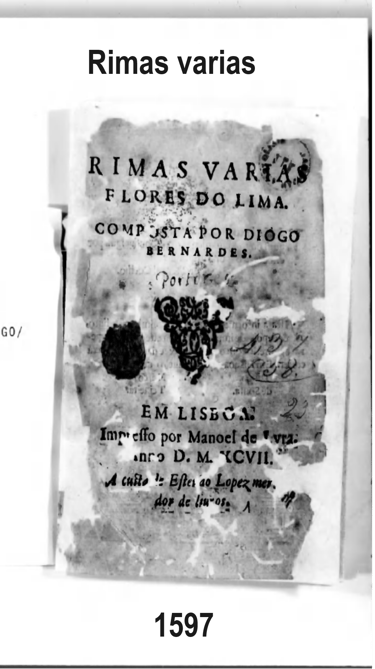 Rimas varias
RIMAS VARIAS
FLORES DO LIMA.
COMPOSTA POR DIOGO
BERNARDES.
GO/
EM LISBOA:
Impresso por Manoel de Lyra.
Anno D. M. XCVII.
A custa de Esteuao Lopez mer.
dor de liuros.
1597